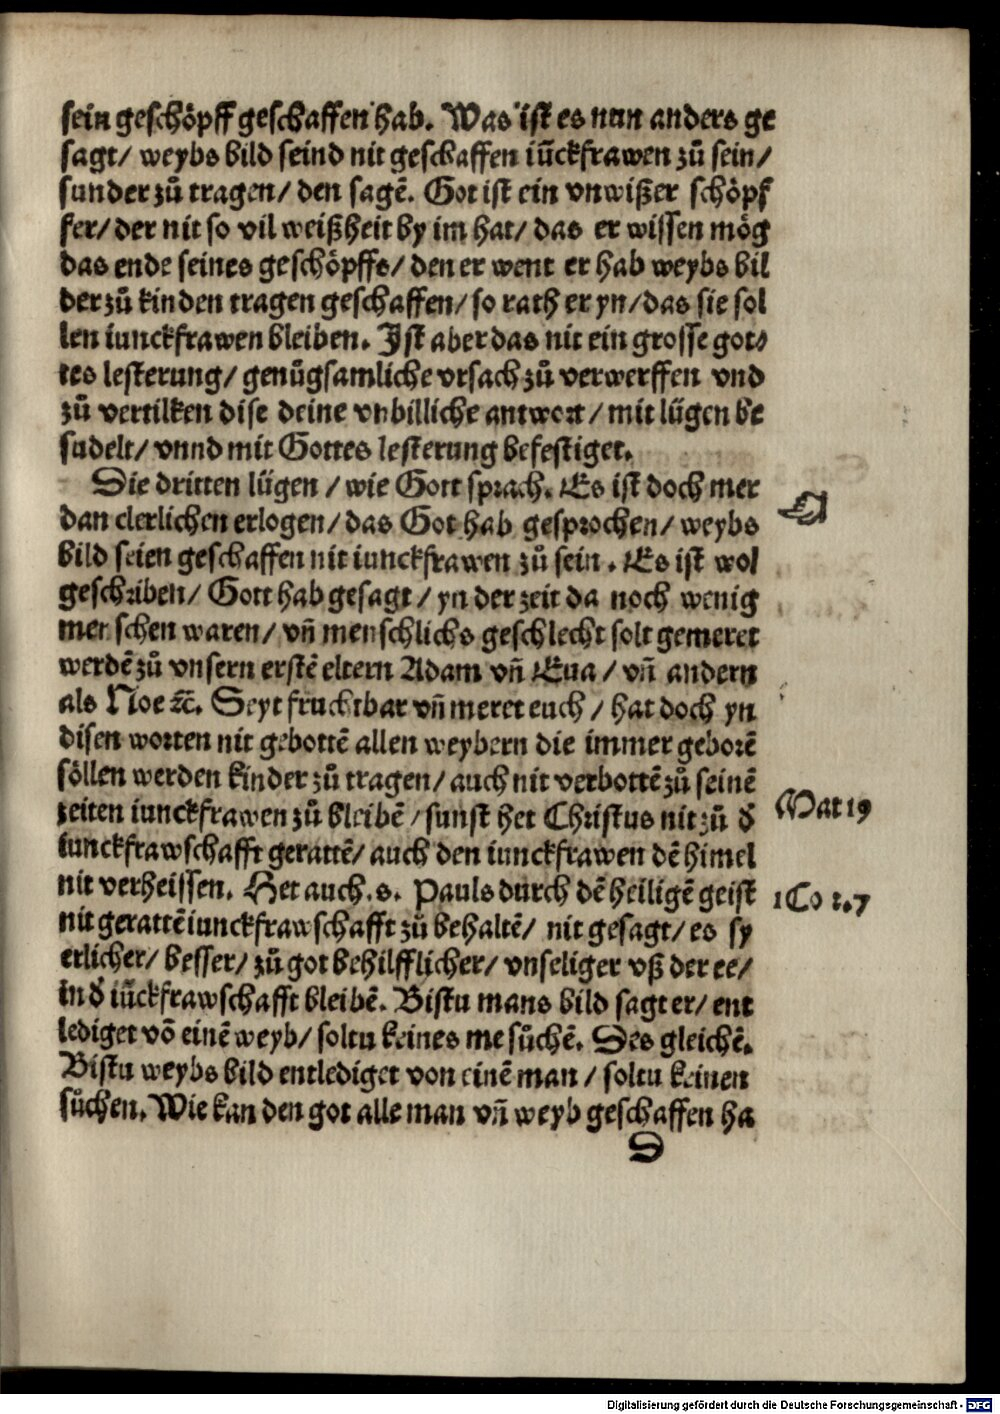 sein geschöpff geschaffen hab. Was ist es nun anders ge
sagt/ weybs bild seind nit geschaffen iūckfrawen zů sein/
sunder zů tragen/ den sagē. Got ist ein vnwißer schöpf
fer/ der nit so vil weißheit by im hat/ das er wissen mög
das ende seines geschöpffs/ den er went er hab weybs bil
der zů kinden tragen geschaffen/ so rath er yn/ das sie sol
len iunckfrawen bleiben. Ist aber das nit ein grosse got⸗
tes lesterung/ genůgsamliche vrsach zů verwerffen vnd
zů vertilken dise deine vnbilliche antwort/ mit lügen be
sudelt/ vnnd mit Gottes lesterung befestiget.
Die dritten lügen/ wie Gott sprach. Es ist doch mer
dan clerlichen erlogen/ das Got hab gesprochen/ weybs
bild seien geschaffen nit iunckfrawen zů sein. Es ist wol
geschriben/ Gott hab gesagt/ yn der zeit da noch wenig
menschen waren/ vñ menschlichs geschlecht solt gemeret
werdē zů vnsern erstē eltern Adam vñ Eua/ vñ andern
als Noe ⁊c̄. Seyt fruchtbar vñ meret euch/ hat doch yn
disen worten nit gebottē allen weybern die immer geborē
söllen werden kinder zů tragen/ auch nit verbottē zů seinē
zeiten iunckfrawen zů bleibē/ sunst het Christus nit zů d̄
Mat 19
iunckfrawschafft gerattē/ auch den iunckfrawen dē himel
nit verheissen. Het auch .s. Pauls durch dē heiligē geist
1 Co 2.7
nit gerattē iunckfrawschafft zů behaltē/ nit gesagt/ es sy
erlicher/ besser/ zů got behilfflicher/ vnseliger vß der ee/
in d̄ iūckfrawschafft bleibē. Bistu mans bild sagt er/ ent
lediget vō einē weyb/ soltu keines me sůchē. Des gleichē.
Bistu weybs bild entlediget von einē man/ soltu keinen
sůchen. Wie kan den got alle man vñ weyb geschaffen ha
D
Digitalisierung gefördert durch die Deutsche Forschungsgemeinschaft - DFG